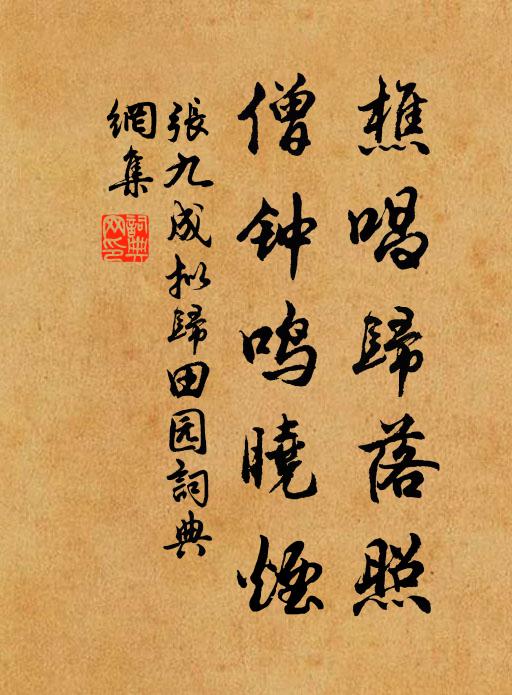 樵唱歸落照
僧钟鸣曉煙
張九成拟歸田园詞典
網集
詞典网印